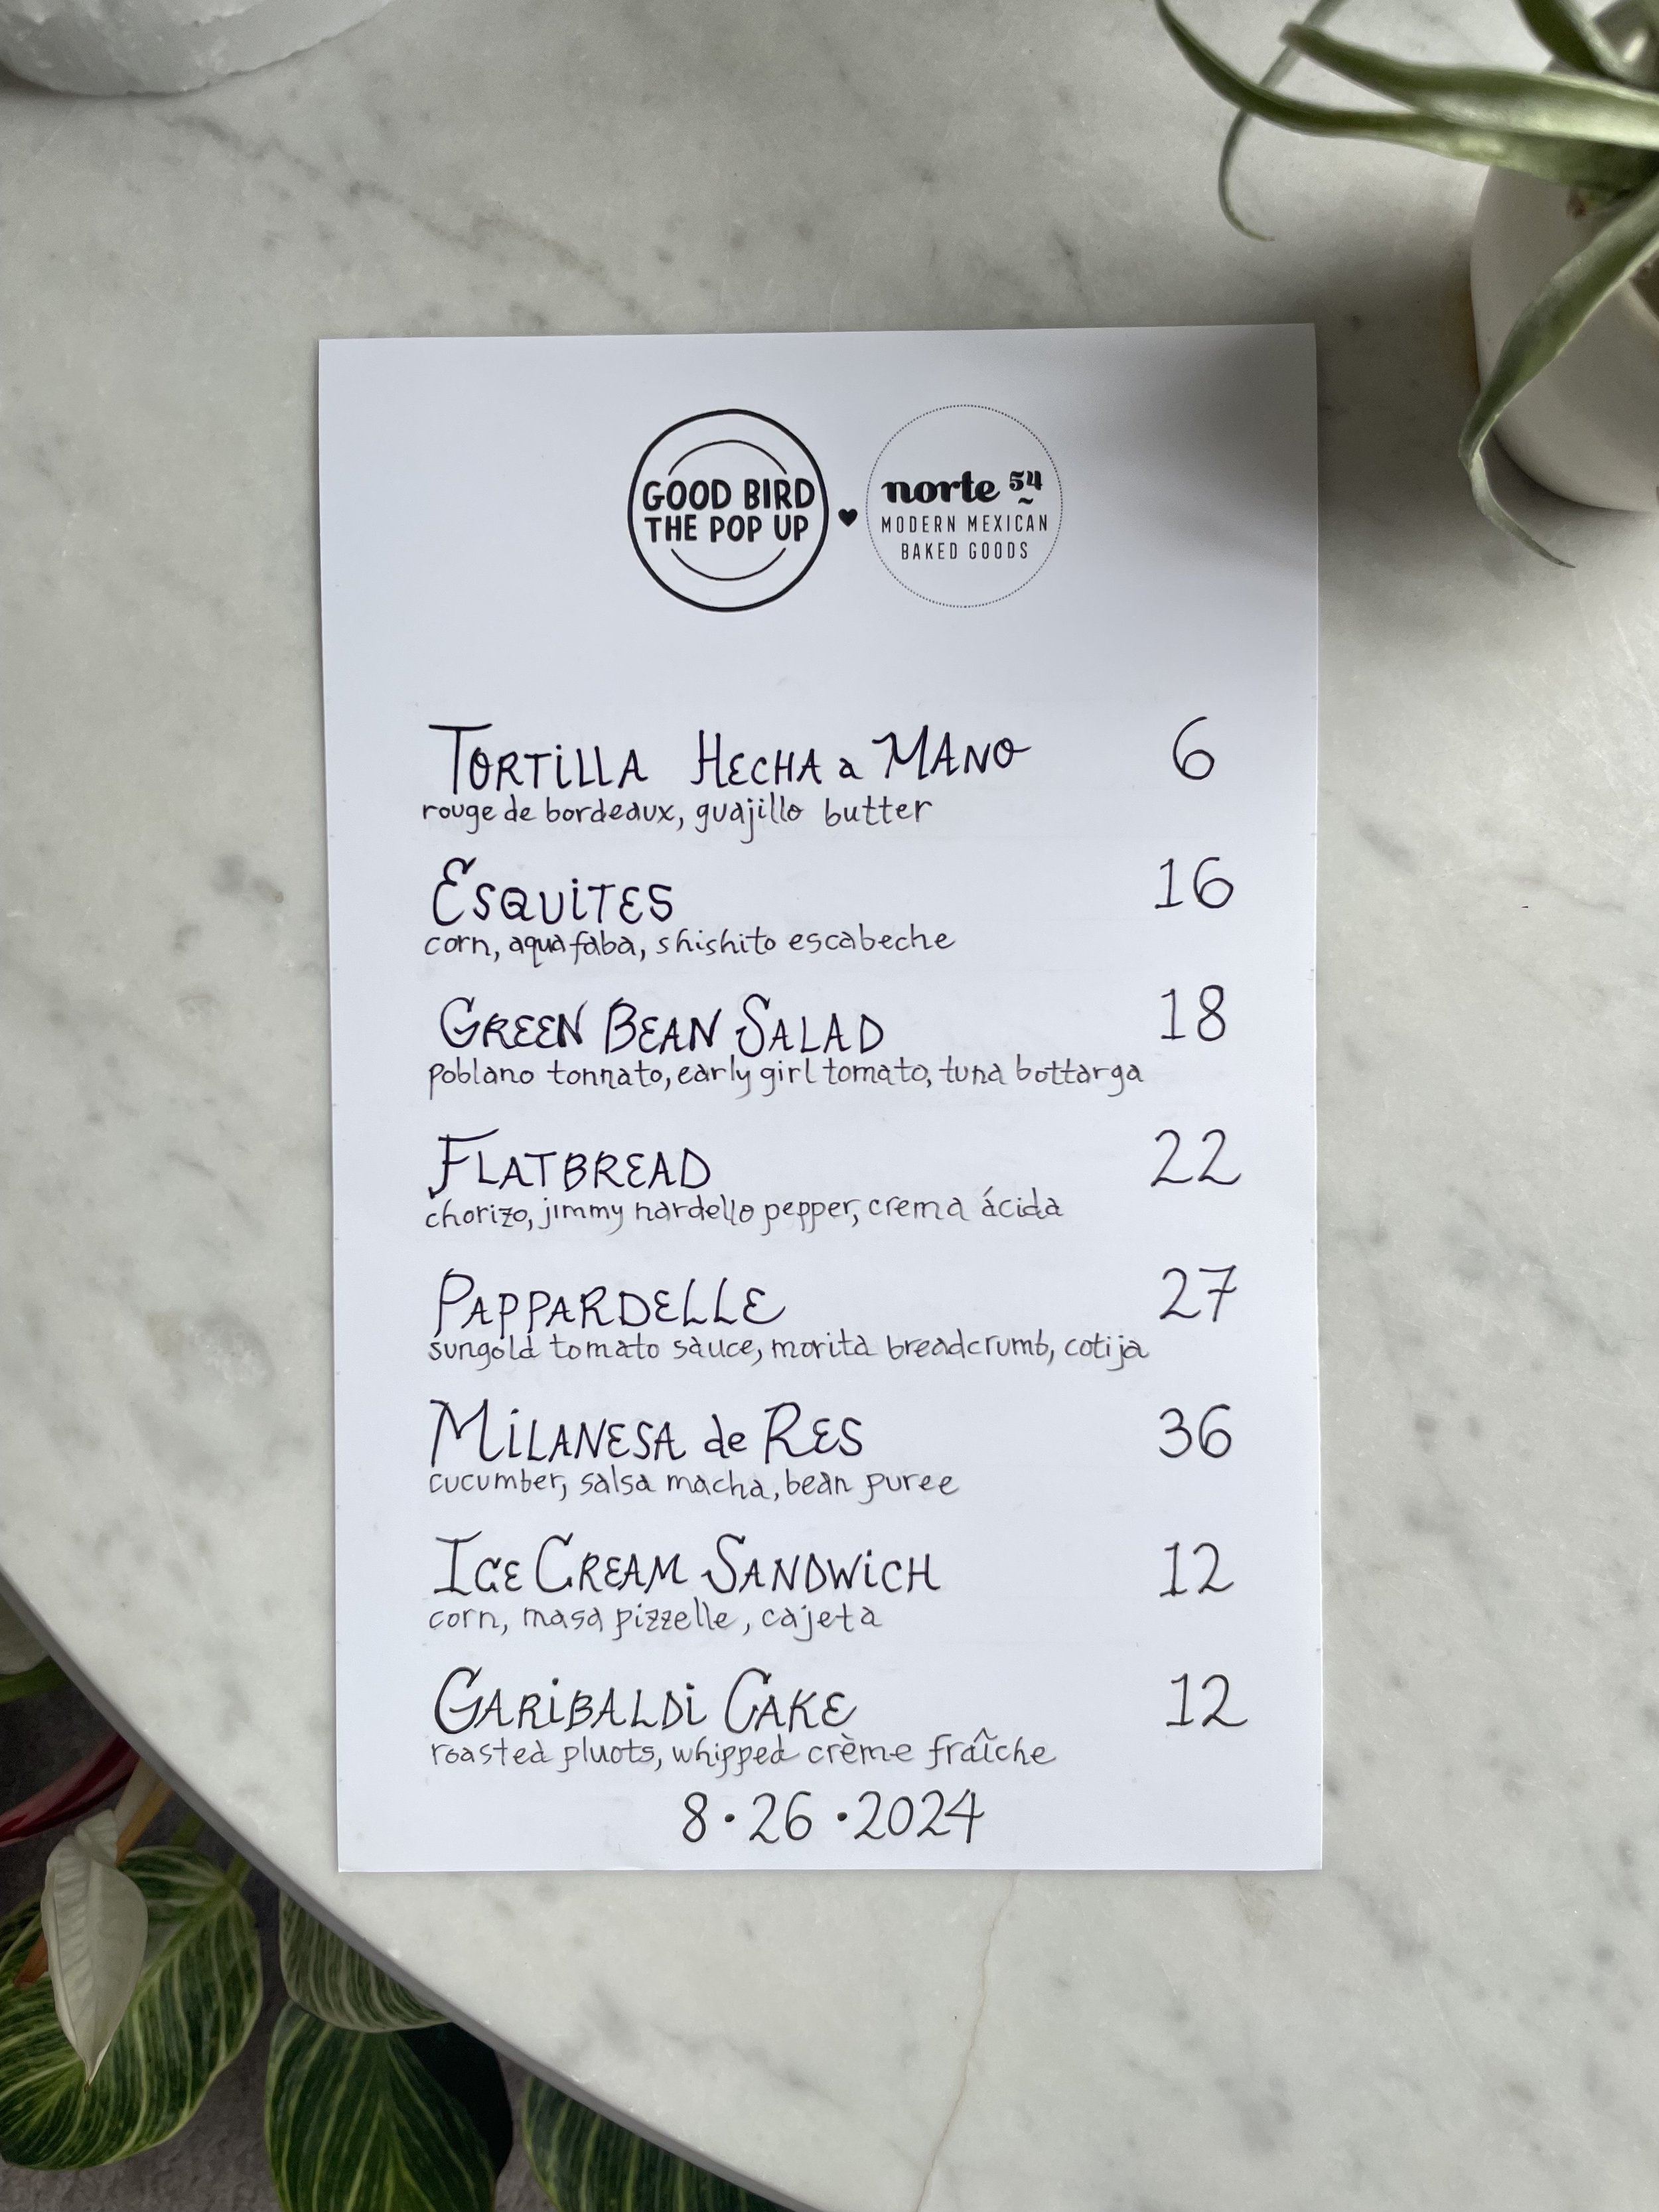 GOOD BIRD
THE POP UP
norte 54
MODERN MEXICAN
BAKED GOODS
TORTiLLA HECHA a MANO 6
rouge de bordeaux, guajillo butter
ESQUiTES 16
corn, aquafaba, shishito escabeche
GREEN BEAN SALAD 18
poblano tonnato, early girl tomato, tuna bottarga
FLATBREAD 22
chorizo, jimmy nardello pepper, crema ácida
PAPPARDELLE 27
sungold tomato sauce, morita breadcrumb, cotija
MiLANESA de RES 36
cucumber, salsa macha, bean puree
ICE CREAM SANDWiCH 12
corn, masa pizzelle, cajeta
GARiBALDi CAKE 12
roasted pluots, whipped crème fraîche
8·26·2024